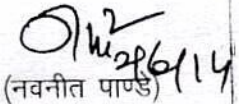 26/6/14
(नवनीत पाण्डे)